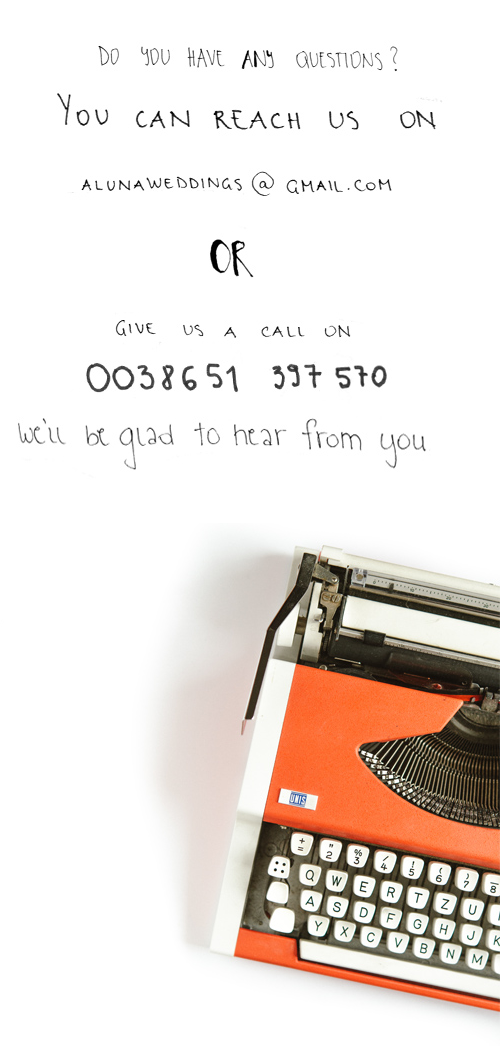 DO YOU HAVE ANY QUESTIONS?
YOU CAN REACH US ON
ALUNAWEDDINGS@GMAIL.COM
OR
GIVE US A CALL ON
0038651 397 570
We'll be glad to hear from you
UNIS
+ = " 2 % 3 / 4 ! 5 ( 6 ) 7 8
Q W E R T Z U
A S D F G H J K
Y X C V B N M